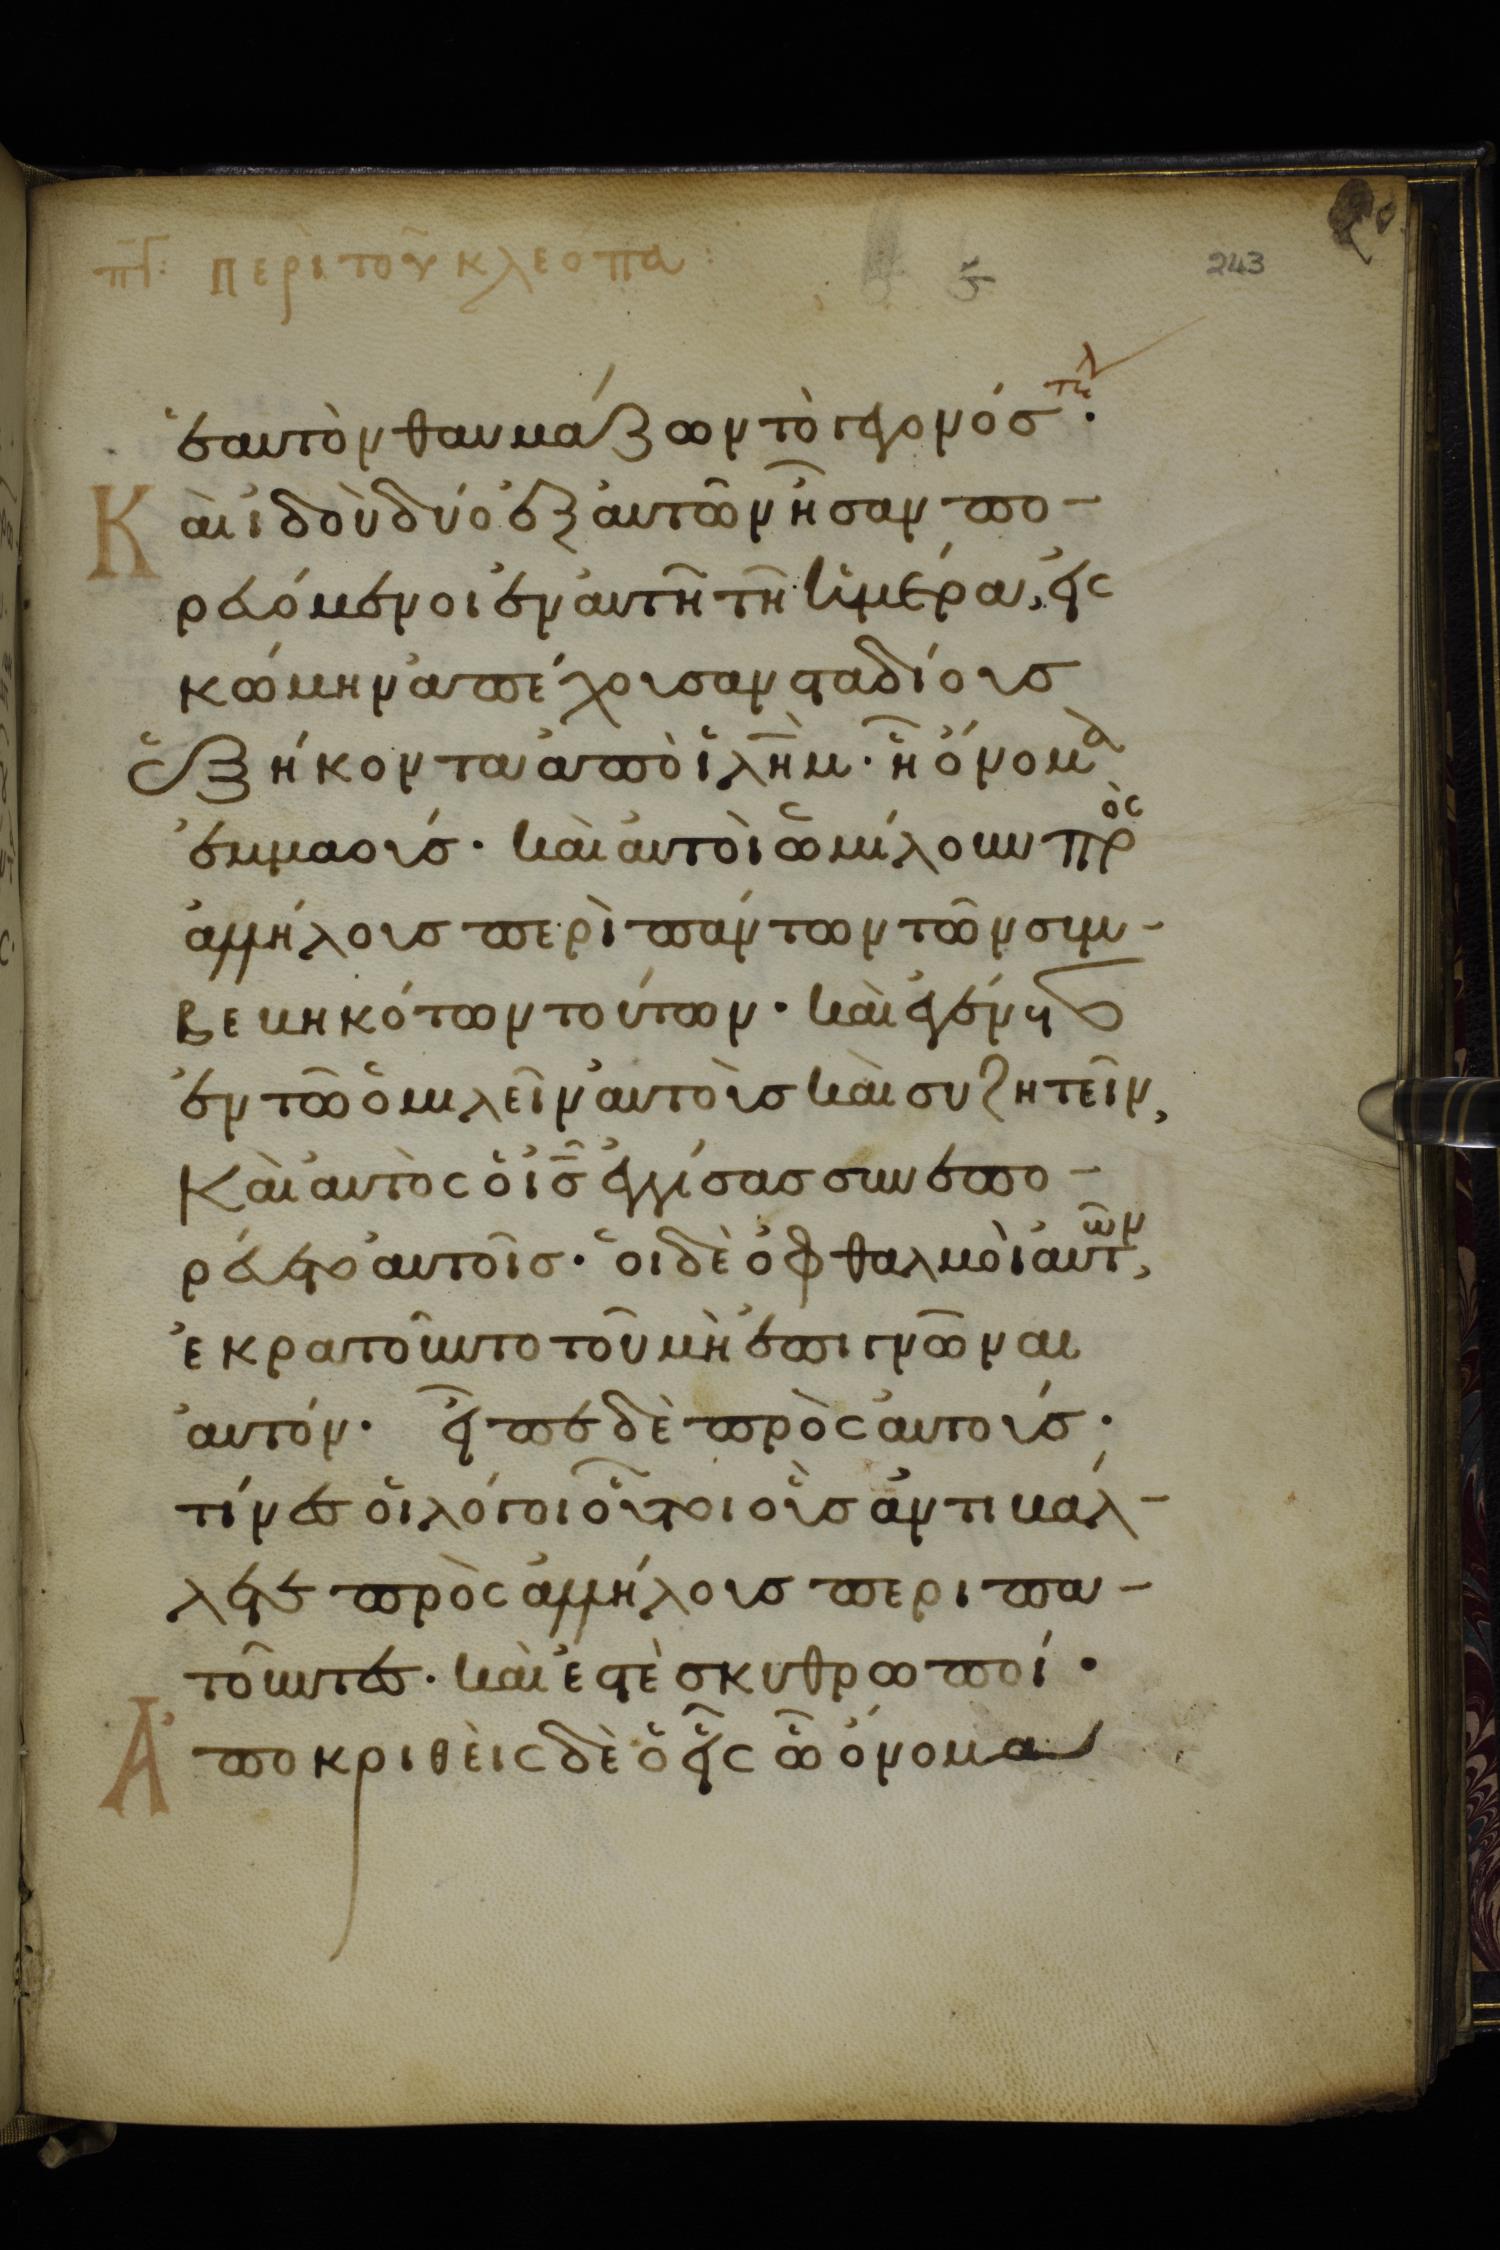 πγ: περὶ τοῦ κλεόπα:
243
ἑαυτὸν θαυμάζων τὸ γεγονός· τελ
Καὶ ἰδοὺ δύο ἐξ αὐτῶν ἦσαν πο-
ρευόμενοι ἐν αὐτῆ τῆ ἡμέρα, εἰς
κώμην ἀπέχουσαν σταδίους
ἑξήκοντα ἀπὸ ἱλῆμ· ἧ ὄνομα
ἐμμαούς· καὶ αὐτοὶ ὡμίλουν πρὸς
ἀλλήλους περὶ πάντων τῶν συμ-
βεβηκότων τούτων· καὶ ἐγένετο
ἐν τῶ ὁμιλεῖν αὐτοὺς καὶ συζητεῖν,
Καὶ αὐτὸς ὁ ις ἐγγίσας συνεπο-
ρεύετο αὐτοῖς· οἱ δὲ ὀφθαλμοὶ αὐτῶν,
ἐκρατοῦντο τοῦ μὴ ἐπιγνῶναι
αὐτόν· εἶπε δὲ πρὸς αὐτούς·
τίνες οἱ λόγοι οὗτοι οὓς ἀντιβάλ-
λετε πρὸς ἀλλήλους περιπα-
τοῦντες· καὶ ἐστὲ σκυθρωποί·
Ἀποκριθεὶς δὲ ὁ εἷς ὧ ὄνομα